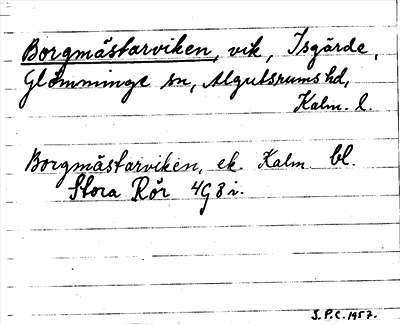 Borgmästarviken, vik, Isgärde,
Glömminge sn, Algutsrums hd,
Kalm. l.
Borgmästarviken, ek. Kalm bl.
Stora Rör 4G8i.
S.P.C. 1957.